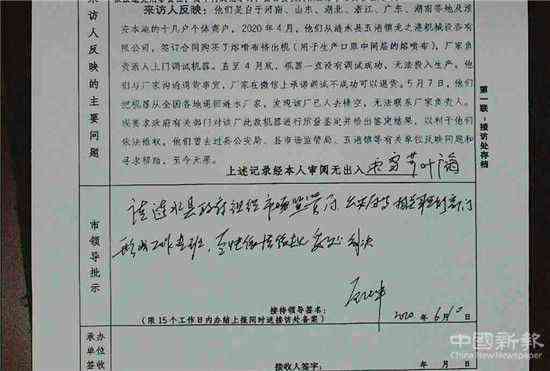 来访人反映的主要问题
来访人反映：他们是自于河南、山东、湖北、浙江、广东、湖南等地及淮
安本地的十几户个体商户，2020年4月，他们从涟水县五港镇龙之港机械设备有
限公司，签订合同购买了熔喷布挤出机（用于生产口罩中间层的熔喷布），厂家负
责派人上门调试机器。直至4月底，机器一直没有调试成功，无法投入生产，他
们与厂家沟通退货事宜，厂家在微信上承诺调试不成功可以退货。5月7日，他们
把机器从全国各地退回涟水厂家，发现该厂已人去楼空，无法联系厂家负责人。
现要求政府有关部门对该厂此款机器进行质量鉴定并给出鉴定结果，以利于他们
依法维权。他们曾去过县公安局、县市场监管局、五港镇等有关单位反映问题和
寻求帮助，至今无果。
上述记录经本人审阅无出入
第一联·接访处存档
市领导批示
请涟水县政府组织市场监管局
形成工作专班，
接待领导签名：
（限15个工作日内办结上报同时送接访处备案）
2020 年 6月10日
承办单位签收
接收人签字：
年 月 日
中國新報
China News Newspaper